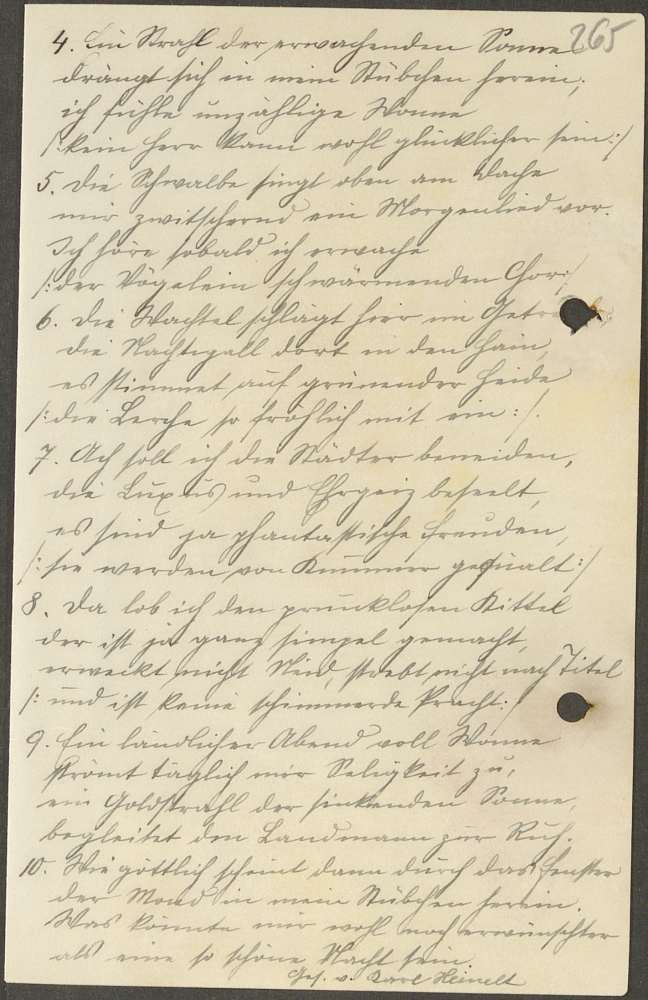 265
4. Ein Strahl der erwachenden Sonne
drängt sich in mein Stübchen herein;
ich fühle unzählige Wonne
/: kein Herr kann wohl glücklicher sein :/
5. Die Schwalbe singt oben am Dache
mir zwitschernd ein Morgenlied vor.
Ich höre sobald ich erwache
/: der Vögelein schwärmenden Chor :/
6. Die Wachtel schlägt hier im
die Nachtigall dort in den Hain,
es stimmet auf grünender Heide
/: die Lerche so fröhlich mit ein :/.
7. Ach soll ich die Städter beneiden,
die Luxus und Ehrgeiz beseelt,
es sind ja phantastische Freuden,
/: sie werden von Kummer gequält :/
8. Da lob ich den prunklosen Kittel
der ist ja ganz simpel gemacht,
erweckt nicht Neid, strebt nicht nach Titel
/: und ist keine schimmerde Pracht :/
9. Ein ländlicher Abend voll Wonne
strömt täglich mir Seligkeit zu,
ein Goldstrahl der sinkenden Sonne,
begleitet den Landmann zur Ruh.
10. Wie göttlich scheint dann durch das Fenster
der Mond in mein Stübchen herein.
Was könnte mir wohl noch erwünschter
als eine so schöne Nacht sein.
Ges. v. Karl Heinelt